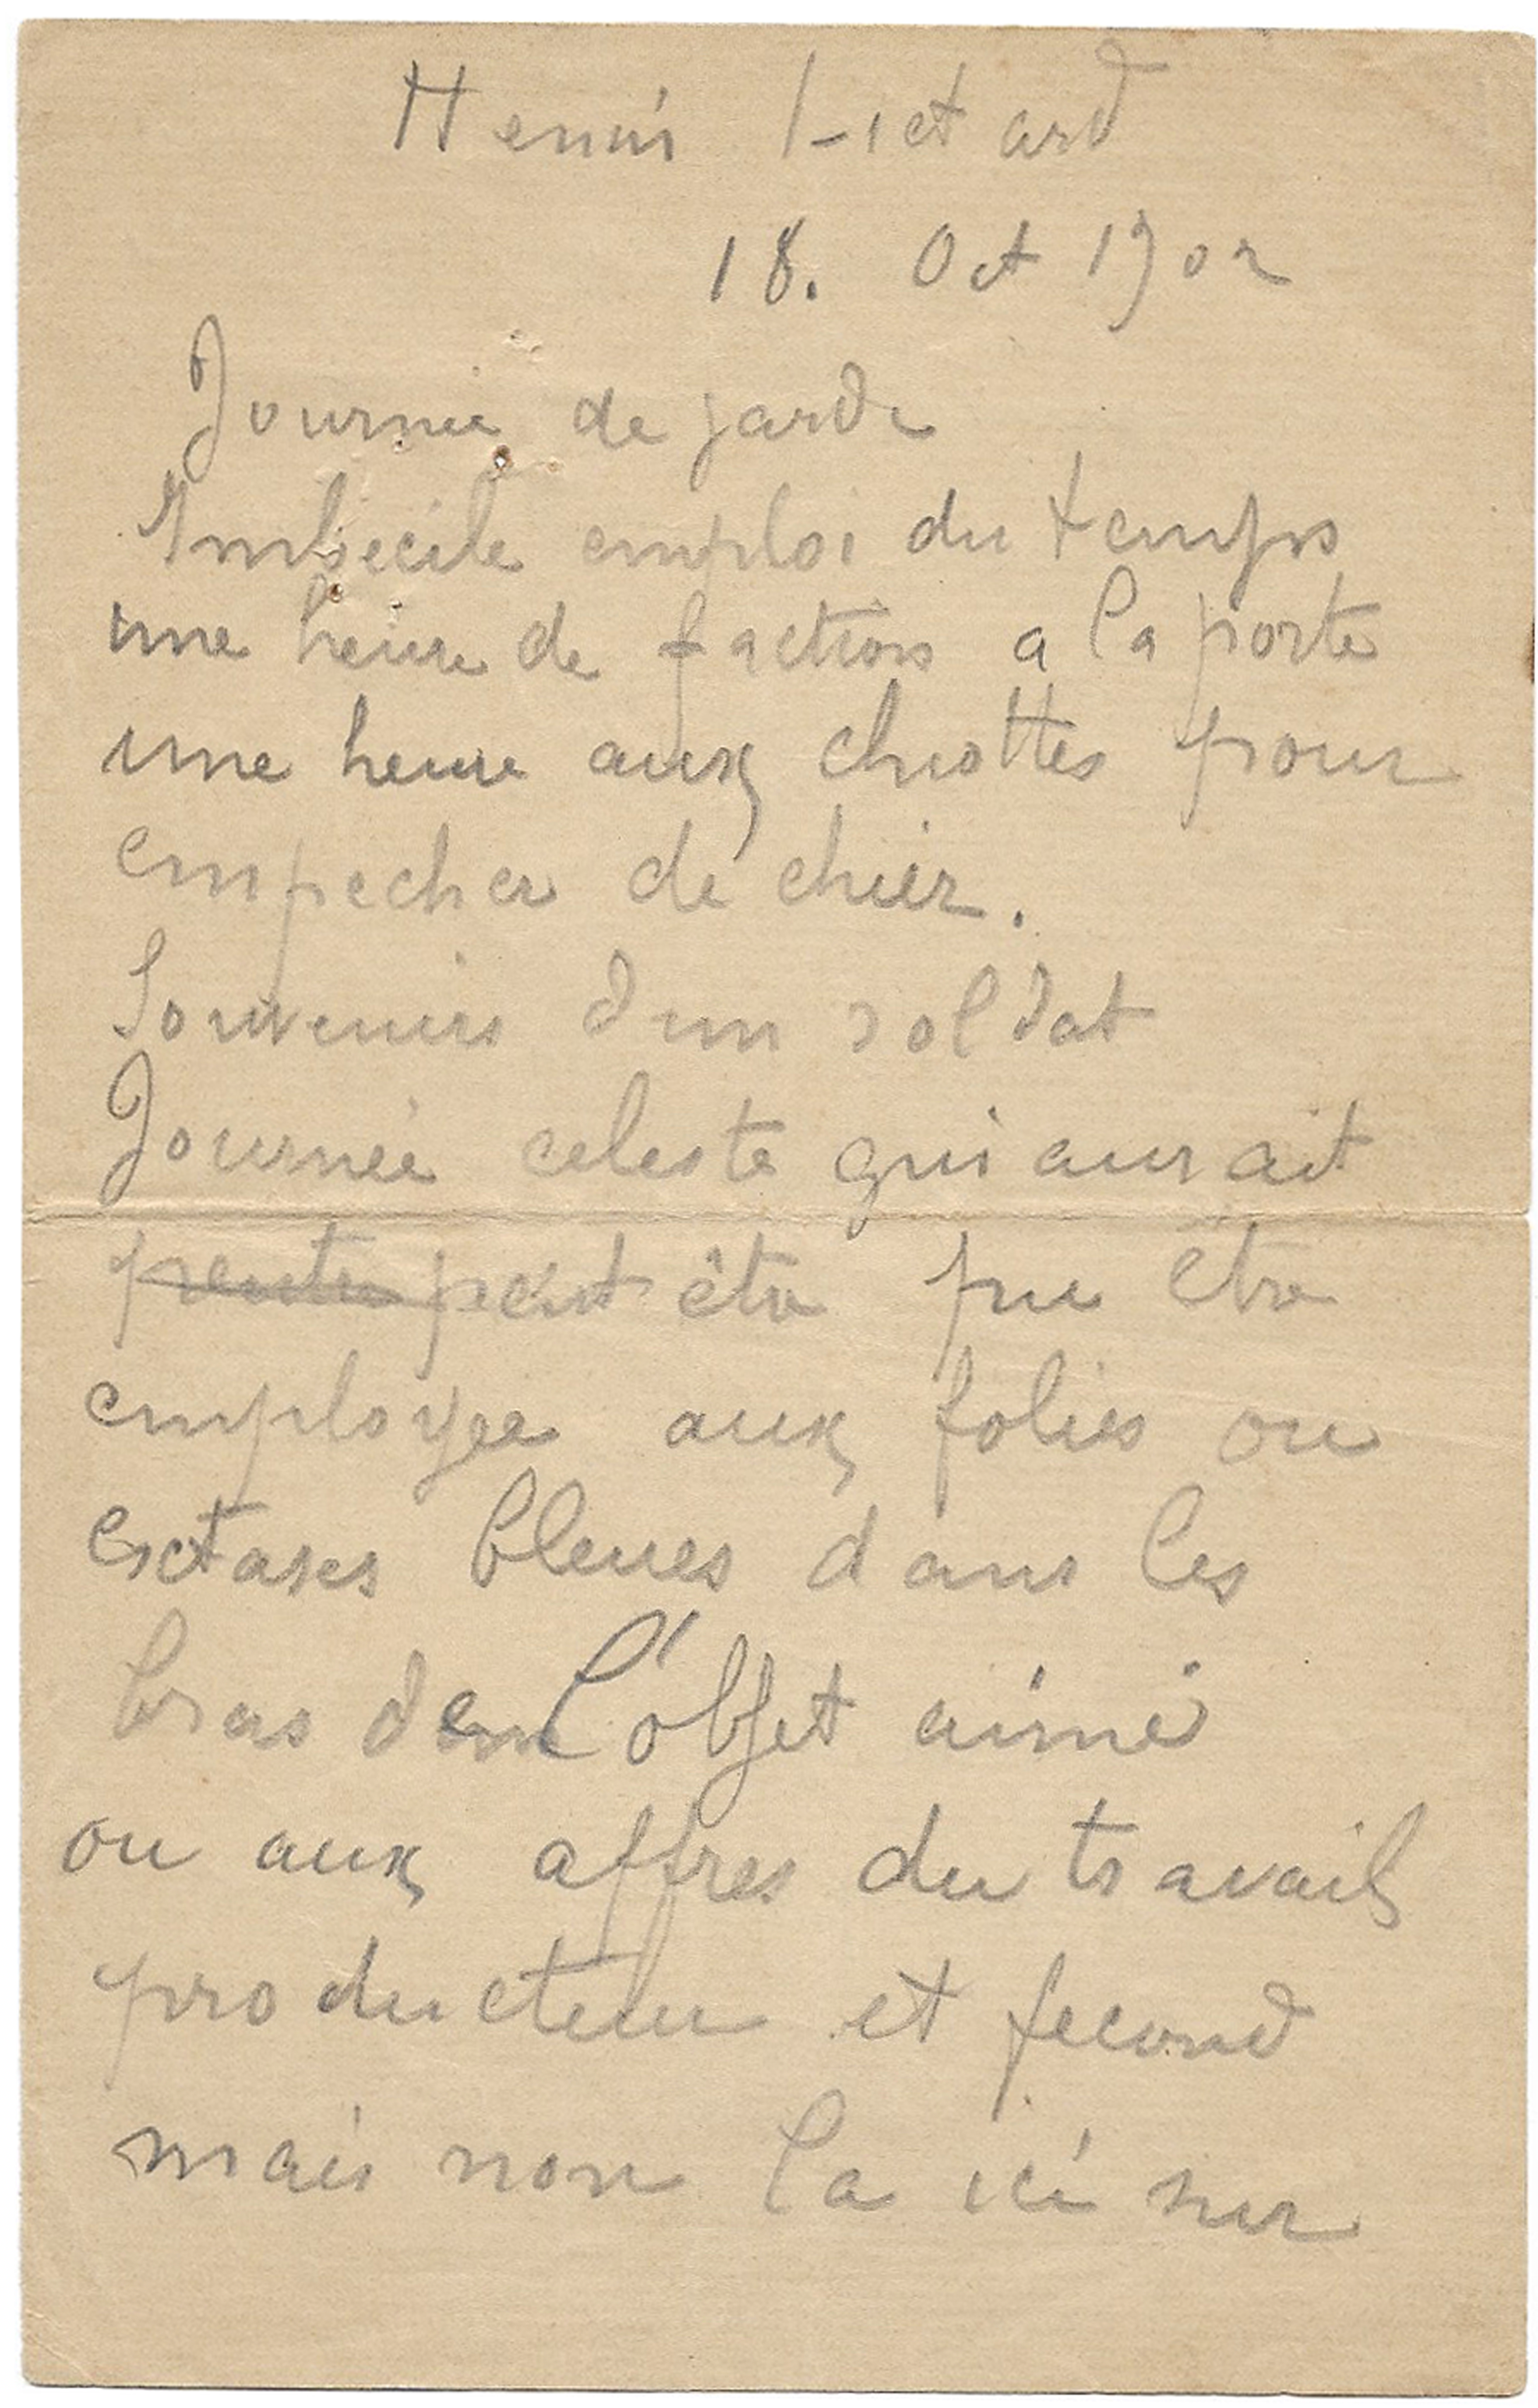 Henri Lietard
18. Oct 1902
Journée de garde
Imbécile emploi du temps
une heure de faction a la porte
une heure aux chiottes pour
empecher de chier.
Souvenirs d'un soldat
Journée celeste qui aurait
peut être pu être
employee aux folies ou
extases bleues dans les
bras de l'objet aimé
ou aux affres du travail
producteur et fecond
mais non la ici sur